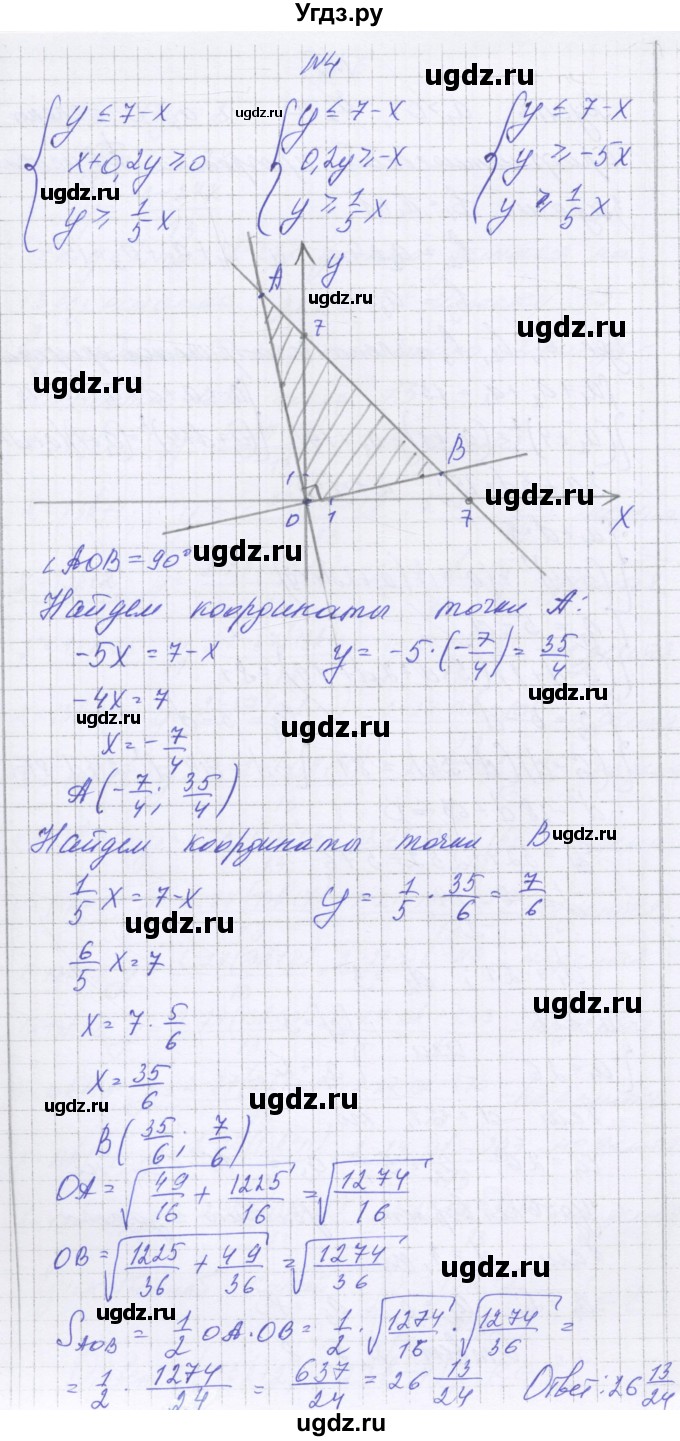 Угдз.ру
№4
{ y ≤ 7-x { y ≤ 7-x { y ≤ 7-x
x+0,2y ≥ 0 0,2y ≥ -x y ≥ -5x
y ≥ 1/5 x y ≥ 1/5 x y ≥ 1/5 x
ugdz.ru
ugdz.ru
ugdz.ru
A y
ugdz.ru
7
ugdz.ru
ugdz.ru
B
1
ugdz.ru
0 1 7 x
∠AOB = 90°
ugdz.ru
Найдем координаты точки A:
-5x = 7-x y = -5·(-7/4) = 35/4
-4x = 7
ugdz.ru
ugdz.ru
ugdz.ru
x = -7/4
A(-7/4; 35/4)
Найдем координаты точки B
ugdz.ru
1/5 x = 7-x y = 1/5 · 35/6 = 7/6
ugdz.ru
6/5 x = 7
ugdz.ru
x = 7 · 5/6
x = 35/6
ugdz.ru
ugdz.ru
B(35/6; 7/6)
OA = √(49/16 + 1225/16) = √(1274/16)
OB = √(1225/36 + 49/36) = √(1274/36)
ugdz.ru
ugdz.ru
S AOB = 1/2 OA·OB = 1/2 · √(1274/16) · √(1274/36) =
= 1/2 · 1274/24 = 637/24 = 26 13/24 Ответ: 26 13/24
ugdz.ru